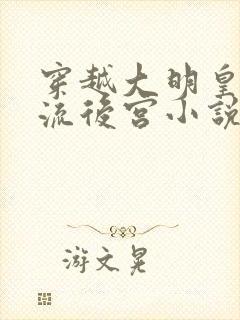 穿越大明皇
流後宮小說
游文晃